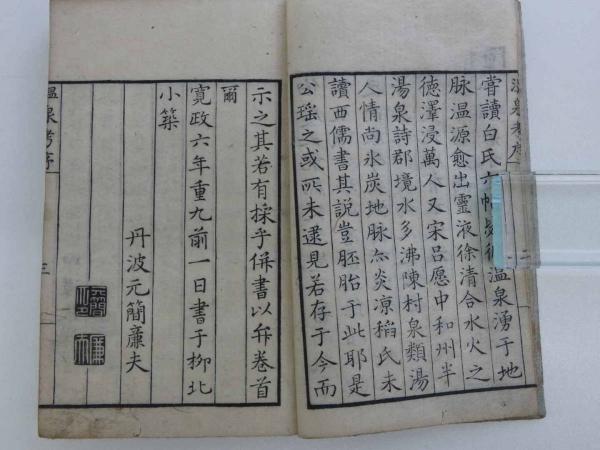 嘗讀白氏六帖
温泉湧于地
脉温源愈出靈液徐清合水火之
徳澤浸萬人又宋吕愿中和州半
湯泉詩郡境水多沸陳村泉類湯
人情尚氷炭地脉亦炎涼稻氏未
讀西儒書其説豈胚胎于此耶是
公瑶之或所未逮見若存于今而
示之其若有採乎併書以弁卷首
爾
寛政六年重九前一日書于柳北
小築
丹波元簡廉夫
温泉考序
三
元簡
廉